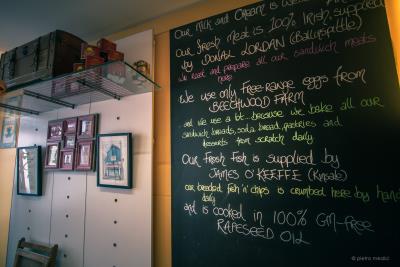 Our Milk and Cream is
Our fresh Meat is 100% Irish, supplied
by DONAL LORDAN (Ballyspittle)
We roast and prepare all our sandwich meats
here
We use only free-range eggs from
BEECHWOOD FARM
and we use a lot... because we bake all our
sandwich breads, soda bread, pastries and
desserts from scratch daily
Our fresh fish is supplied by
JAMES O'KEEFFE (Kinsale)
our breaded fish 'n' chips is crumbed here by hand
daily
and is cooked in 100% GM-free
RAPESEED OIL
© pietro medici